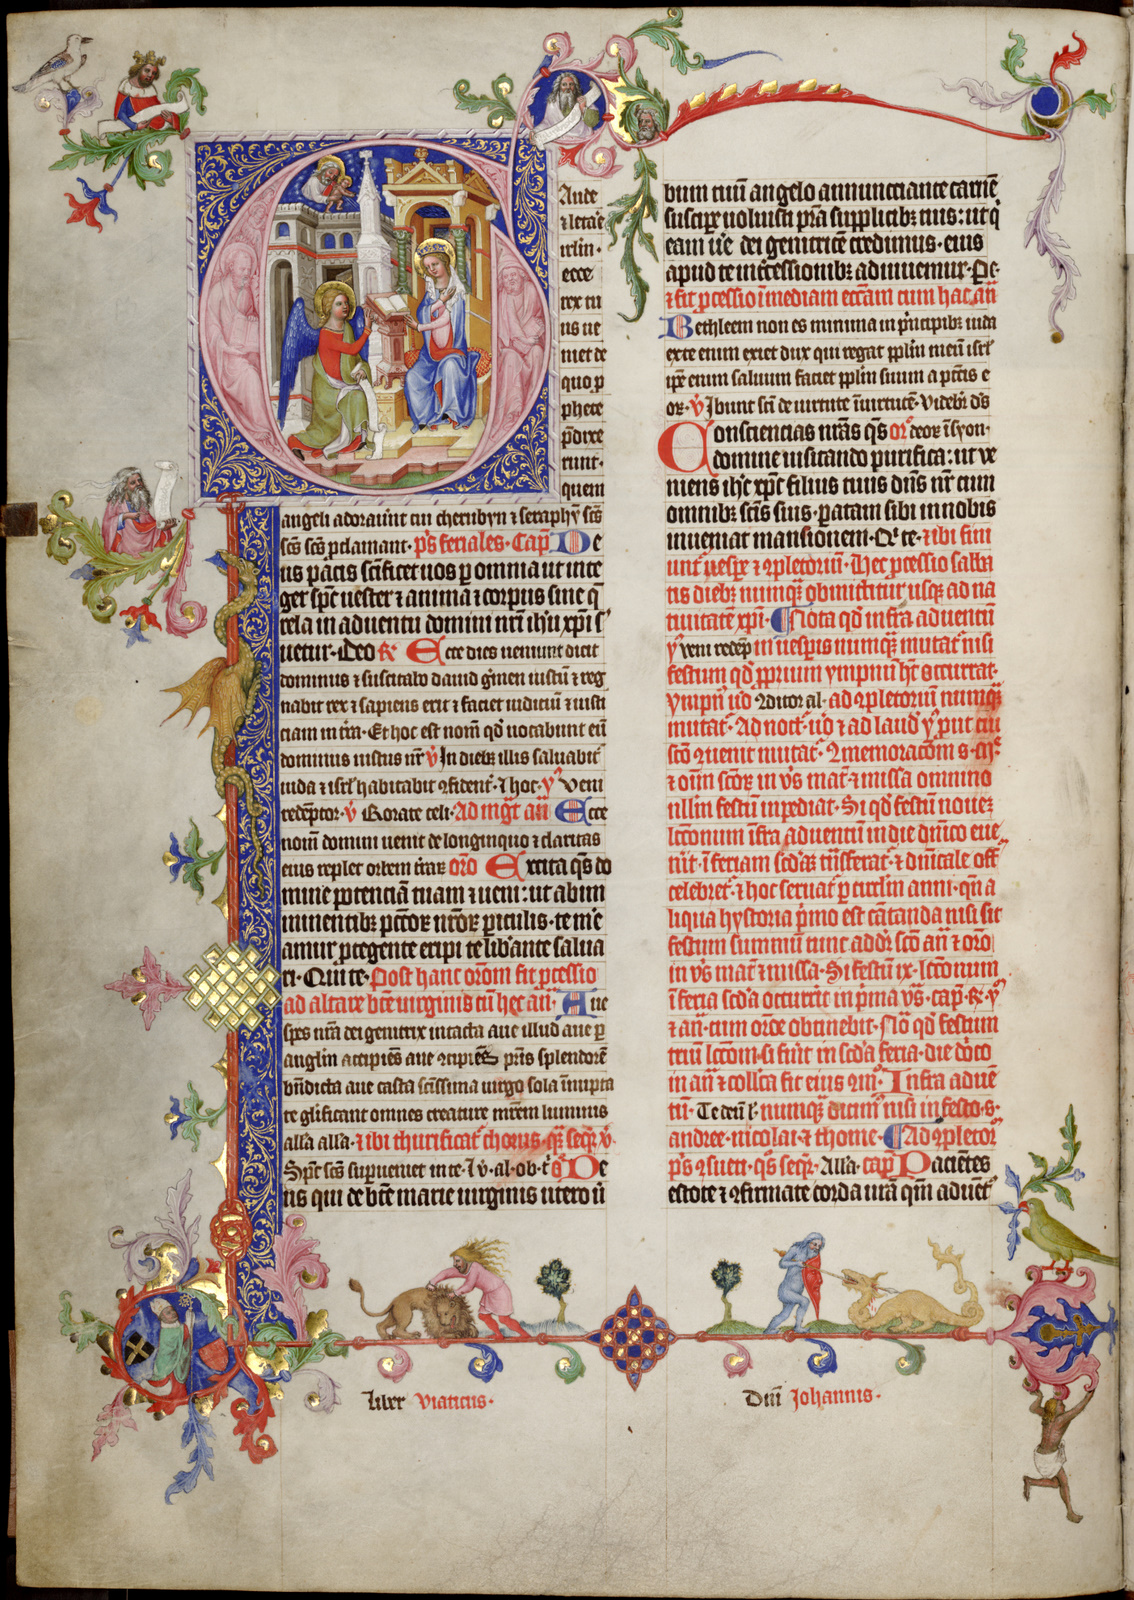 Aude
& letare
irlm ·
ecce
rex tu
us ve
niet de
quo p
phete
pdixe
runt ·
quem
angeli adoraverunt cui cherubyn & seraphyn scs
scs scs pclamant · ps feriales · Cap De
us pacis scificet vos p omnia ut inte
ger spc vester & anima & corpus sine q
rela in adventu domini nri ihu xpi s
vetur · Deo R Ecce dies veniunt dicit
dominus & suscitabo david germen iustum & reg
nabit rex & sapiens erit & faciet iudicium & iusti
ciam in tra · Et hoc est nomen qd vocabunt eum
dominus iustus nr V In diebz illis salvabit
iuda & isrl habitabit cfident · & hoc · V Veni
redemptor · V Rorate celi · Ad mgt an Ecce
nomen domini venit de longinquo & claritas
eius replet orbem trarum oro Excita qs do
mine potenciam tuam & veni : ut ab im
minentibz pctorum nrorum piculis · te me
amur ptegente eripi te libante salva
ri · Qui te · Post hanc orom fit pcessio
ad altare bte virginis cu hec an · Ave
spes nra dei genitrix intacta ave illud ave p
anglm accipiens ave cipiens pris splendore
bndicta ave casta scissima virgo sola innupta
te glificant omnes creature mrem luminis
alla alla · & ibi thurificat chorus · qr seqr V
Spc scs superveniet in te · & V · al · ob · t s De
us qui de bte marie virginis utero v
bum tuum angelo annunciante carne
suscipe voluisti pra supplicibz tuis : ut q
eam ve dei genitrice credimus · eius
apud te intcessionibz adiuvemur · Pe ·
& fit pcessio i mediam eccam cum hac an
Bethleem non es minima in principibz iuda
ex te enim exiet dux qui regat pplm meum isrl
ipe enim salvum faciet pplm suum a pctis e
or · V Ibunt sci de virtute i virtute · Videbr ds
Consciencias nras qs or deor i syon ·
domine visitando purifica : ut ve
niens ihc xpc filius tuus dns nr cum
omnibz scis suis · patam sibi in nobis
inveniat mansionem · Qi te · & ibi fini
unt vespe & cpletorium · Hec pcessio sabba
tis diebz nunquam obmittitur usqz ad na
tivitate xpi · Nota qd infra adventum
V veni redemp in vesperis nunquam mutat nisi
festum qd pprium ympnum ht occurrat ·
Ympn vo Conditor al · ad cpletorium nunquam
mutat · Ad noct · vo & ad laud V put cu
sco cvenit mutat · Cmemoracom s · crs
& om scor in vs mat & missa omnino
nllm festum inpediat · Si qd festum novez
lcconum infra adventum in die dnico eve
nit · i feriam scdam transferat · & dnicale off
celebret · & hoc servat p circlm anni · qn a
liqua hystoria pmo est cantanda nisi sit
festum summum tunc addr sco an & oro
in vs mat & missa · Si festum ix · lcconum
i feria scda occurrit in pma vs · cap · R · V
& an · cum orde obtinebit · No qd festum
trium lcconum si fuit in scda feria · die dnico
in an & collca fit eius cm · Infra adve
tu · Te deum l · nunquam dicimus nisi in festo · s ·
andree · nicolai · & thome · Ad cpletor
ps csueti · qs seqr · Alla · cap Pacientes
estote & cfirmate corda vra qm advent
liber Viaticus ·
Dni Johannis ·